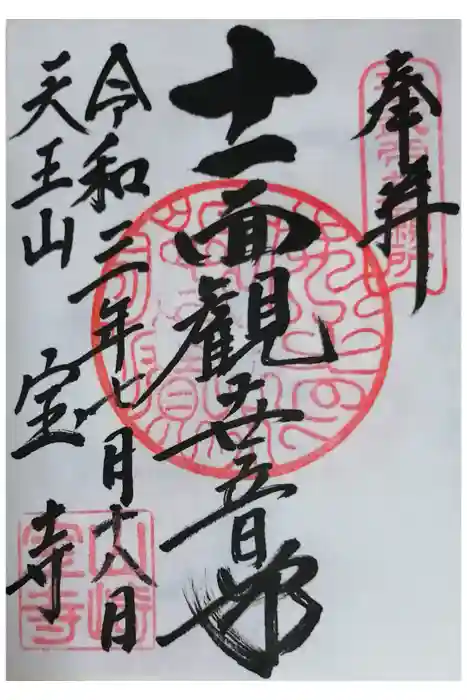 奉拝
十一面観世音
令和三年七月十八日
天王山 宝寺
山崎
宝寺